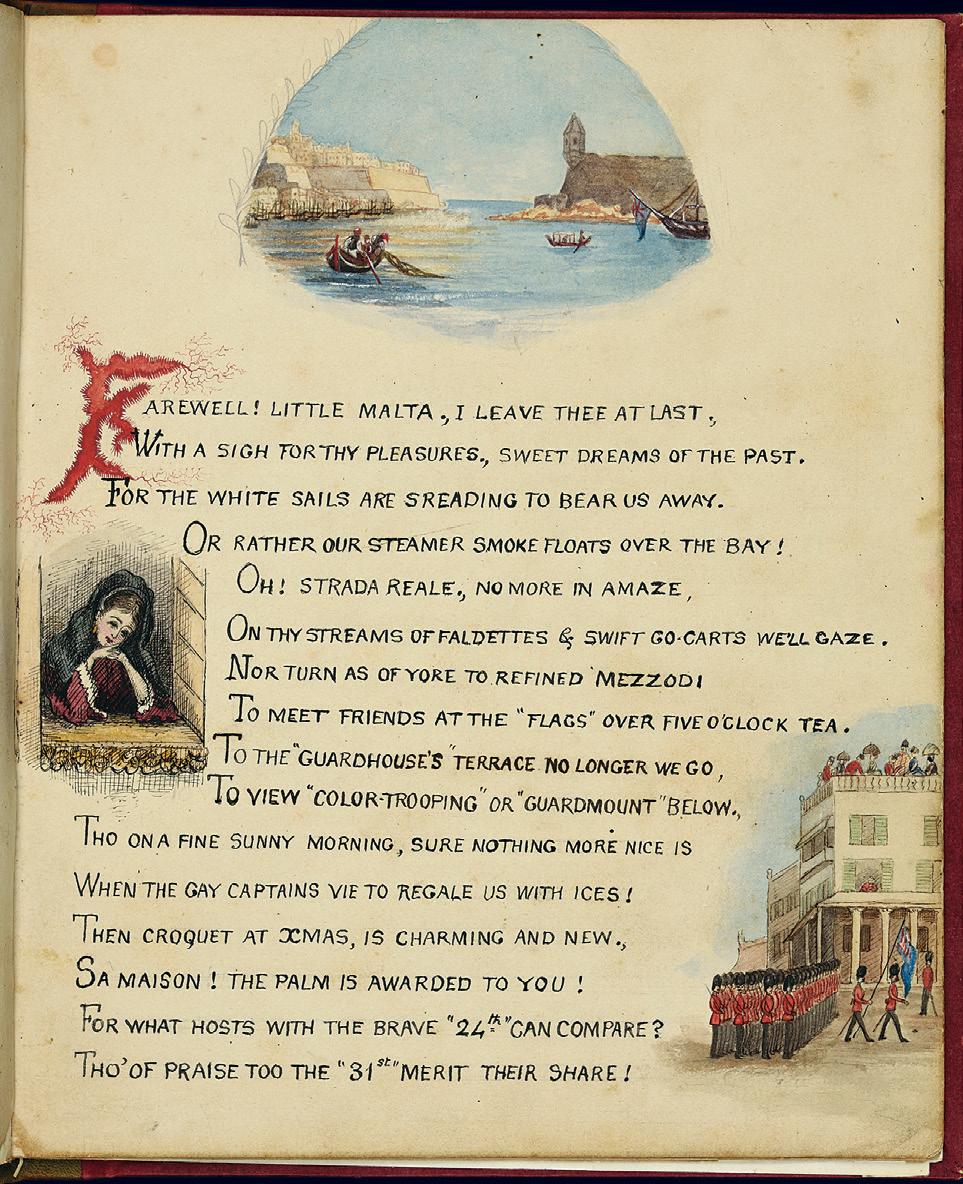 FAREWELL! LITTLE MALTA., I LEAVE THEE AT LAST.,
WITH A SIGH FOR THY PLEASURES., SWEET DREAMS OF THE PAST.
FOR THE WHITE SAILS ARE SREADING TO BEAR US AWAY.
OR RATHER OUR STEAMER SMOKE FLOATS OVER THE BAY!
OH! STRADA REALE., NO MORE IN AMAZE,
ON THY STREAMS OF FALDETTES & SWIFT GO-CARTS WE'LL GAZE.
NOR TURN AS OF YORE TO REFINED 'MEZZODI
TO MEET FRIENDS AT THE "FLAGS" OVER FIVE O'CLOCK TEA.
TO THE "GUARDHOUSE'S" TERRACE NO LONGER WE GO,
TO VIEW "COLOR-TROOPING" OR "GUARDMOUNT" BELOW.,
THO ON A FINE SUNNY MORNING, SURE NOTHING MORE NICE IS
WHEN THE GAY CAPTAINS VIE TO REGALE US WITH ICES!
THEN CROQUET AT XMAS, IS CHARMING AND NEW.,
SA MAISON! THE PALM IS AWARDED TO YOU!
FOR WHAT HOSTS WITH THE BRAVE "24th" CAN COMPARE?
THO' OF PRAISE TOO THE "31st" MERIT THEIR SHARE!